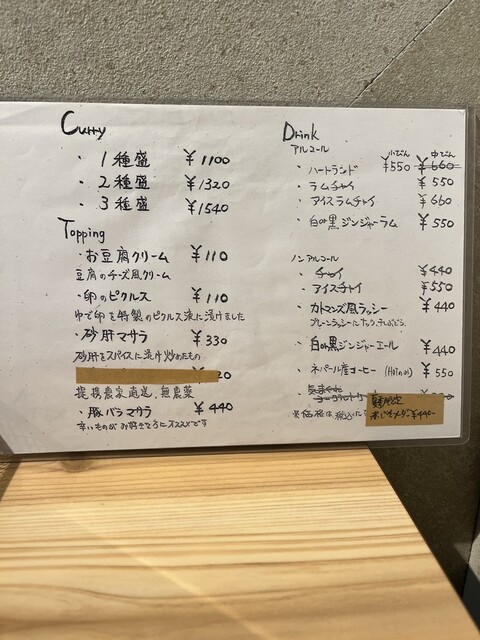 Curry
・1種盛 ¥1100
・2種盛 ¥1320
・3種盛 ¥1540
Topping
・お豆腐クリーム ¥110
豆腐のチーズ風クリーム
・卵のピクルス ¥110
ゆで卵を特製のピクルス液に漬けました
・砂肝マサラ ¥330
砂肝をスパイスに漬け炒めたもの
20
提携農家直送、無農薬
・豚バラマサラ ¥440
辛いものがお好きな方にオススメです
Drink
アルコール 小びん 中びん
・ハートランド ¥550 ¥660
・ラムチャイ ¥550
・アイスラムチャイ ¥660
・白or黒ジンジャーラム ¥550
ノンアルコール
・チャイ ¥440
・アイスチャイ ¥550
・カトマンズ風ラッシー ¥440
プレーンラッシーにナッツ、
・白or黒ジンジャーエール ¥440
・ネパール産コーヒー (Hotのみ) ¥550
※価格は税込
¥440-